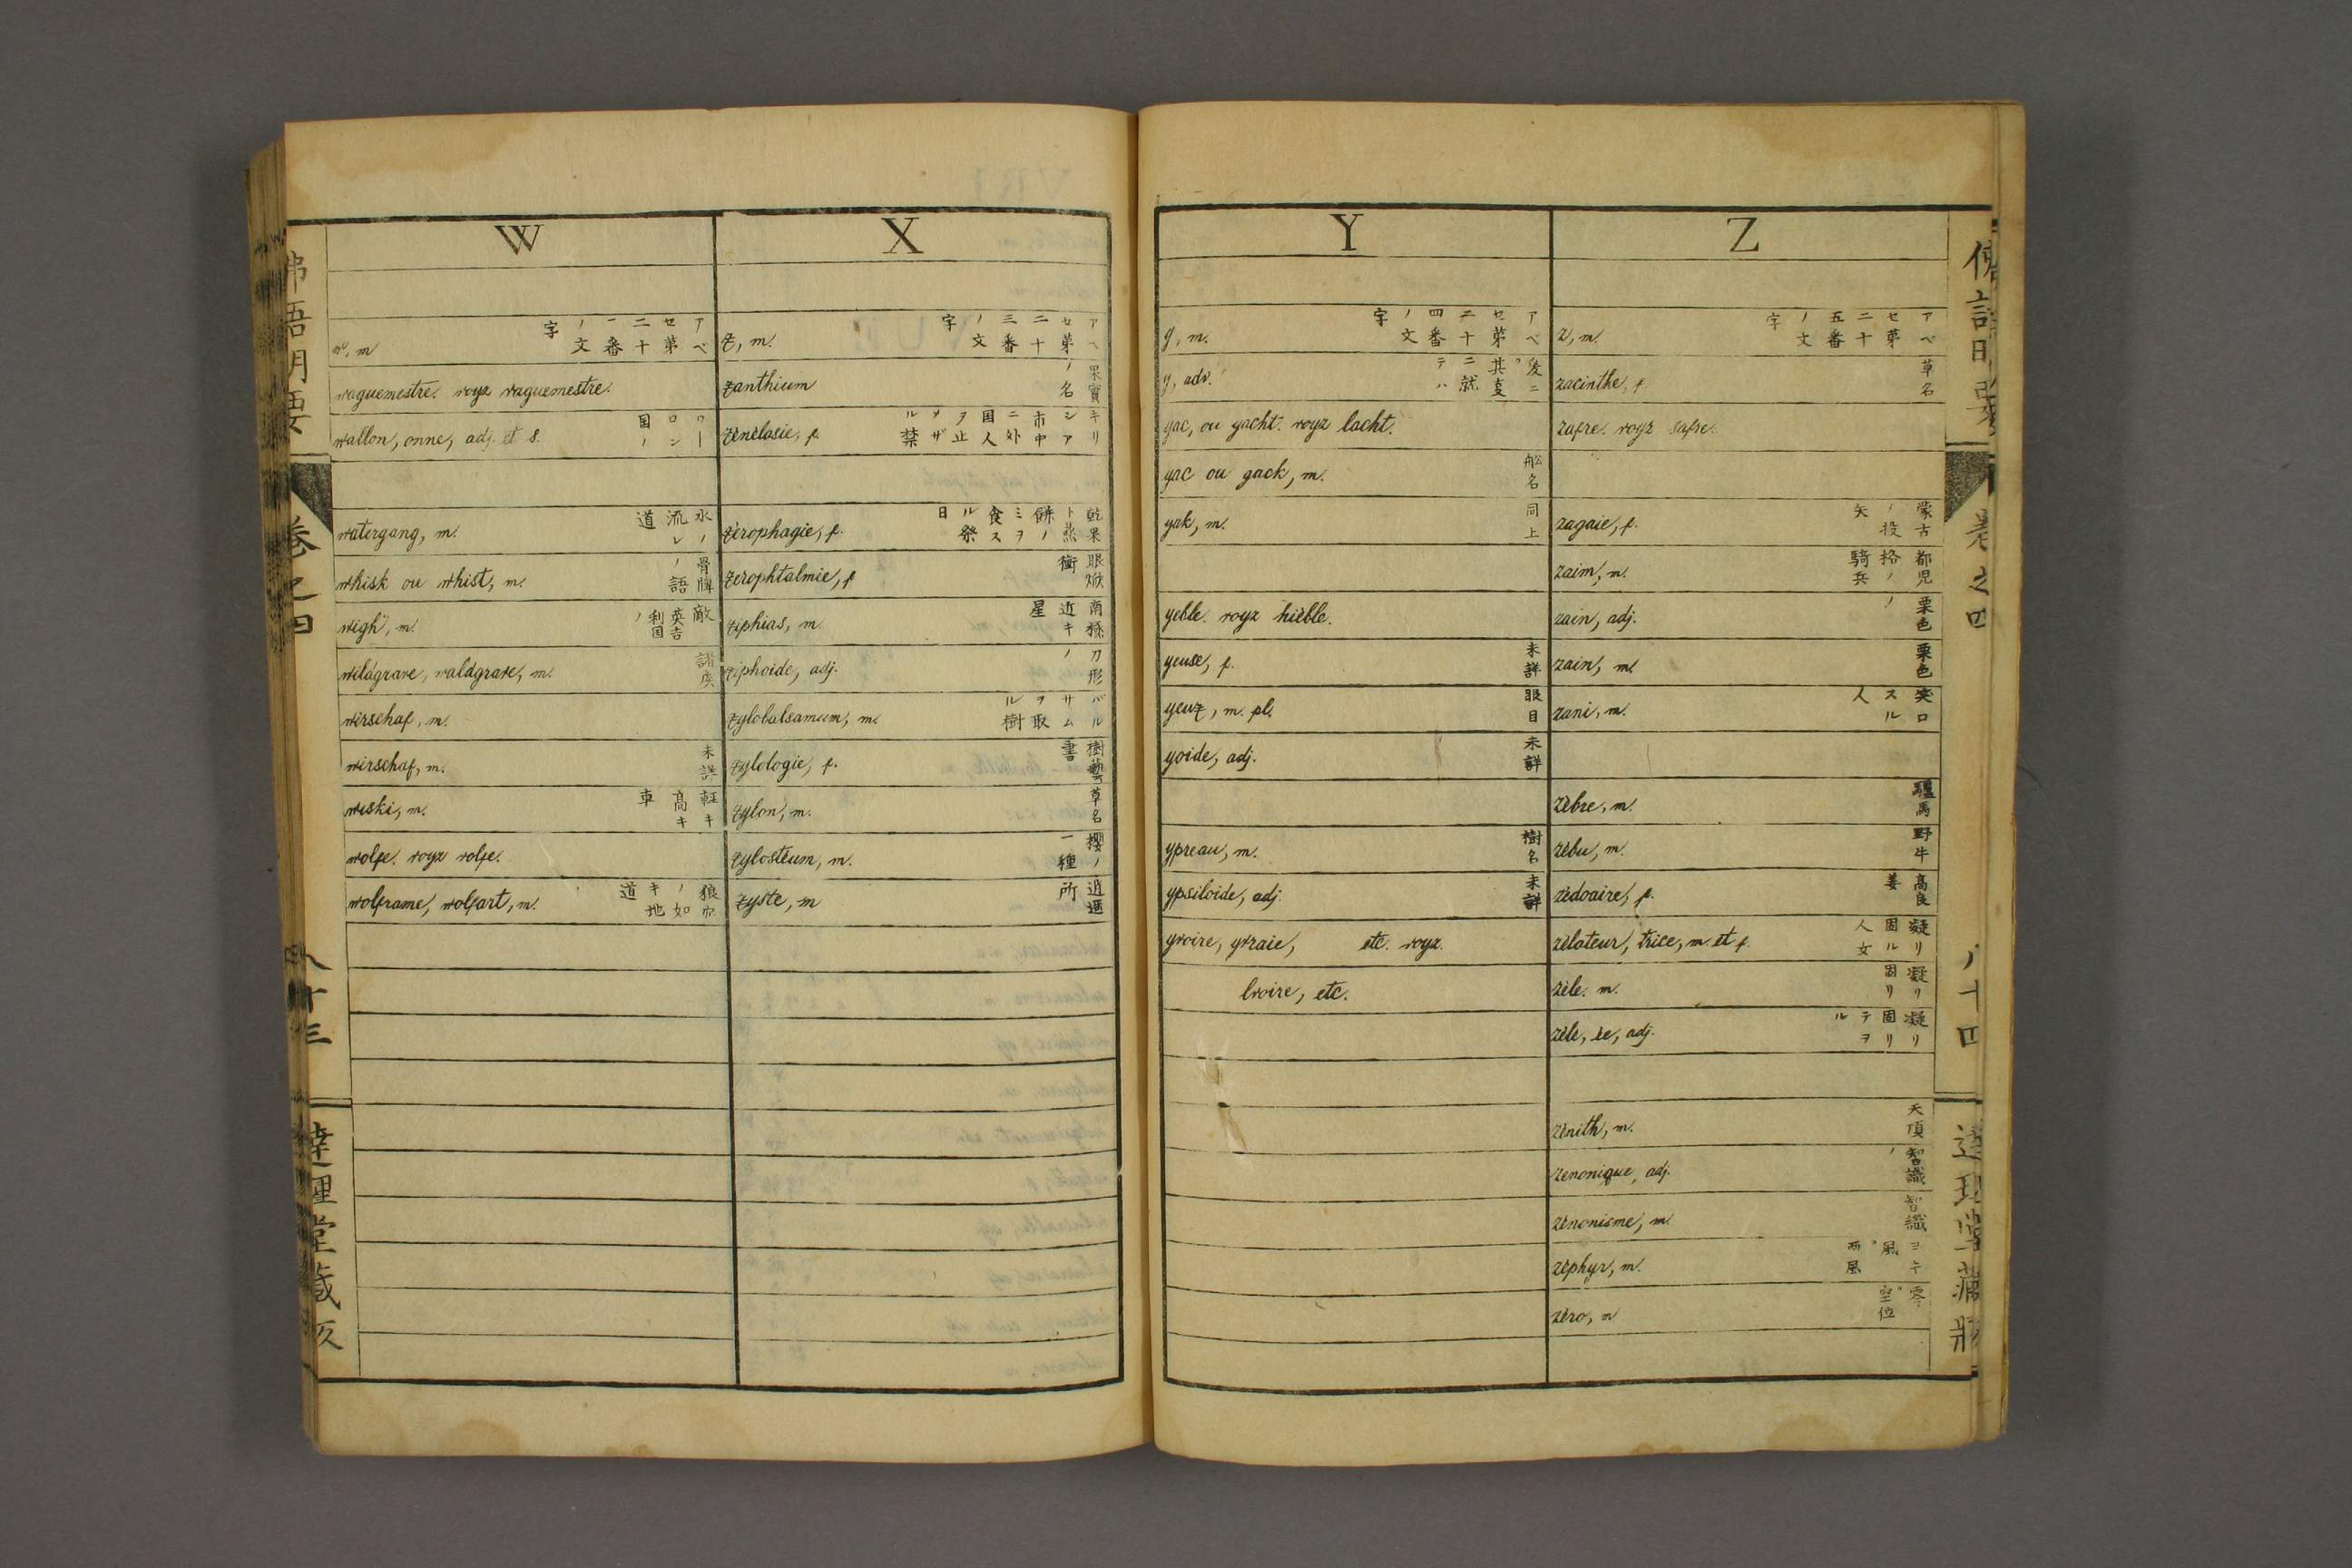 W
w, m アベセ第二十一番ノ文字
waguemestre. voyz vaguemestre.
wallon, onne, adj. et s. ワーロンノ国
watergang, m. 水ノ流レ道
whisk ou whist, m. 骨牌ノ語
wigh, m. 敵英吉利国ノ
wildgrave, waldgrave, m. 諸侯
wirschaf, m.
wirschaf, m. 未詳
wiski, m. 軽キ高キ車
wolfe. voyz volfe.
wolframe, wolfart, m.
X
x, m. アベセ第二十三番ノ文字
xanthium 果實ノ名
xénélasie, f.
xérophagie, f. 乾果ト蒸餅ノミヲ食スル祭日
xerophtalmie, f 眼焮衝
xiphias, m. 南極近キ星
xiphoïde, adj. 刀形ノ
xylobalsamum, m. バルサムヲ取ル樹
xylologie, f. 樹藝書
xylon, m. 草名
xylosteum, m. 櫻ノ一種
xyste, m 逍遥所
佛語明要 巻之四 八十三 達理堂蔵版
Y
y, m. アベセ第二十四番ノ文字
y, adv. 爰ニ。其事ニ就テハ
yac, ou yacht. voyz Iacht.
yac ou gack, m. 舩名
yak, m. 同上
yeble. voyz hièble.
yeuse, f. 未詳
yeux, m. pl. 眼目
yoide, adj. 未詳
ypreau, m. 樹名
ypsiloïde, adj. 未詳
yvoire, yvraie, etc. voyz.
Ivoire, etc.
Z
z, m. アベセ第二十五番ノ文字
zacinthe, f. 草名
zafre. voyz safre.
zagaie, f. 蒙古ノ投矢
zaim, m. 都児格ノ騎兵
zain, adj. 栗色ノ
zain, m. 栗色
zani, m.
zèbre, m. 驢馬
zébu, m. 野牛
zédoaire, f. 高良姜
zélateur, trice, m. et f. 凝リ固ル人女
zèle. m. 凝リ固リ
zélé, ée, adj. 凝リ固リテヲル
zénith, m. 天頂
zenonique, adj. 智識ノ
zénonisme, m. 智識
zéphyr, m. 風。西風
zéro, m 零。空位
佛語明要 巻之四 八十四 達理堂蔵版